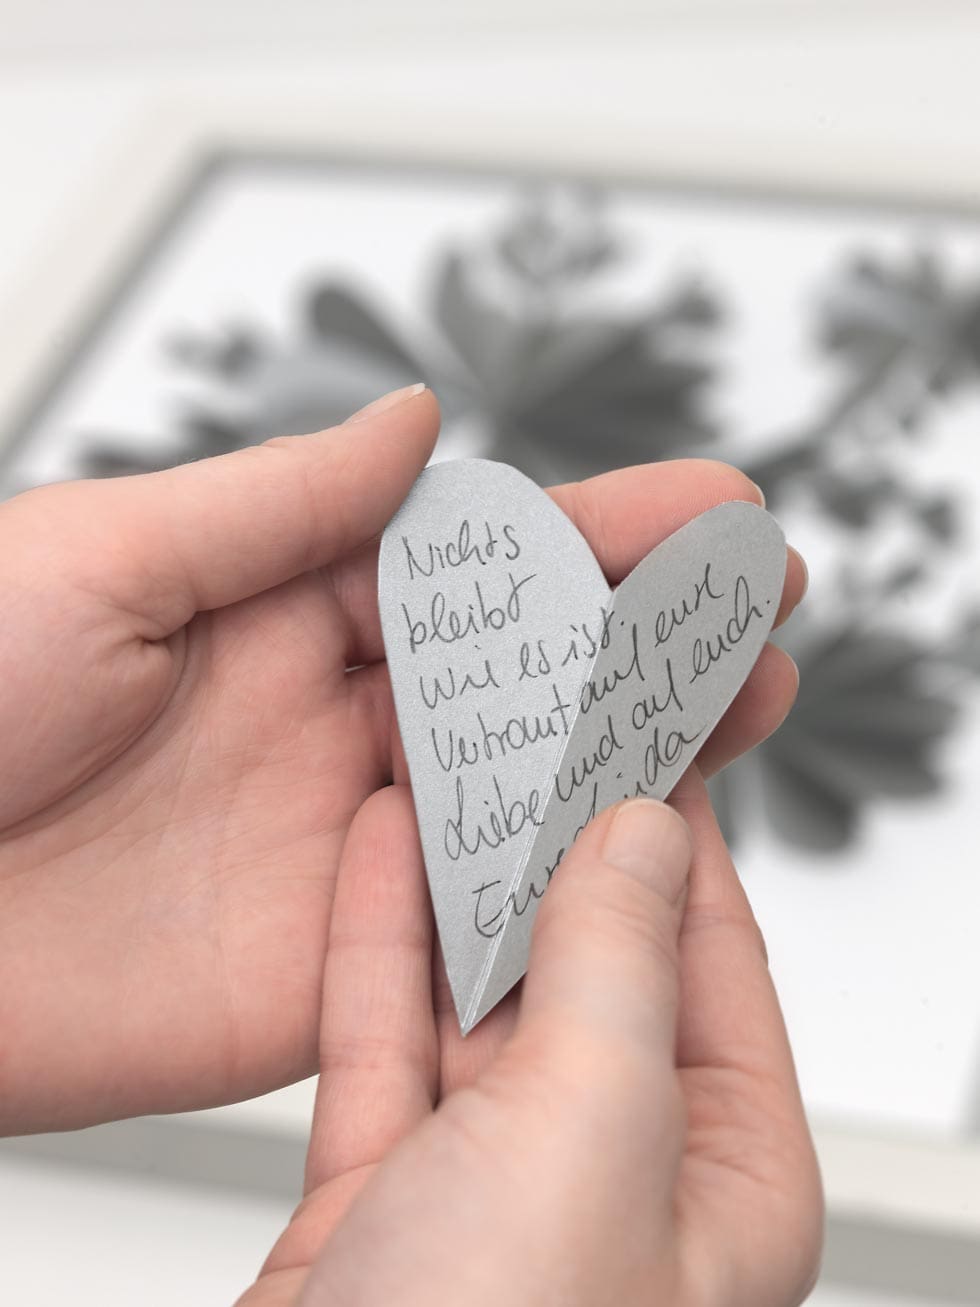 Nichts
bleibt
wie es ist.
Vertraut auf eure
Liebe und auf euch.
Eure Linda